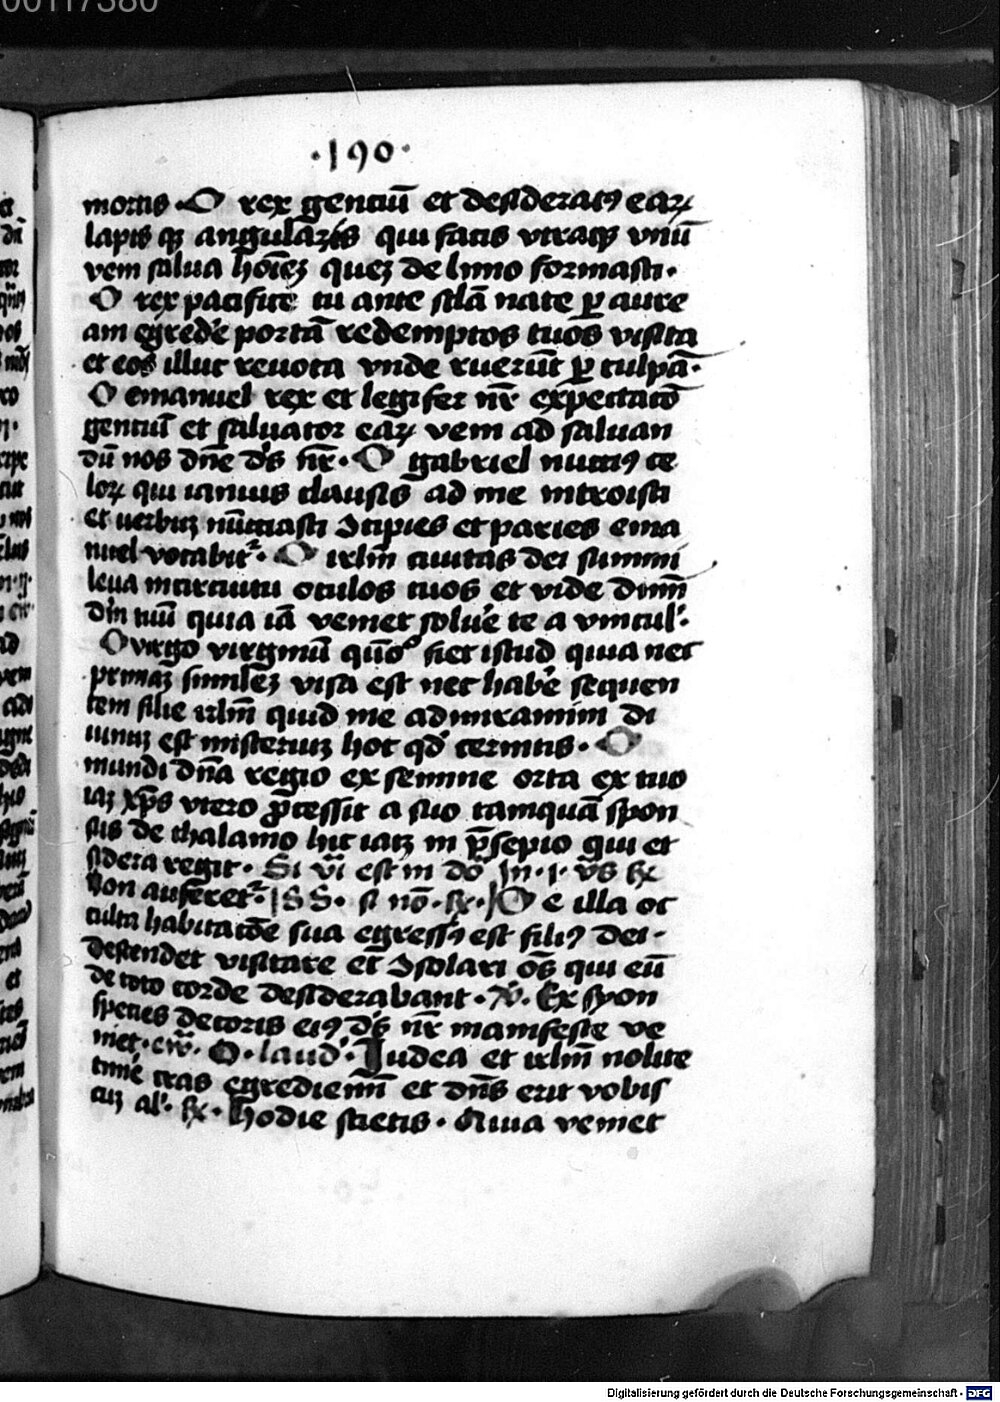 00117380
·190·
mortis · O rex gentiū et desiderat9 eaꝝ
lapis qꝫ angularis qui facis vtraqꝫ vnū
veni salua hoīeꝫ queꝫ de limo formasti·
O rex pacifice tu ante sclā nate ꝑ aure
am egred'e portā redemptos tuos visita
et eos illuc reuoca vnde ruerūt ꝑ culpā·
O emanuel rex et legifer nr̄ expectatō
gentiū et saluator eaꝝ veni ad saluan
dū nos dn̄e d's nr̄ · O gabriel nucci9 ce
loꝝ qui ianuis clausis ad me introisti
et uerbuꝫ nūctiasti Ↄcipies et paries ema
nuel vocabit᷑ · O irlm̄ ciuitas dei summi
leua incircuitu oculos tuos et vide dnm̄
dm̄ tuū quia iā veniet solu'e te a vincul'·
O virgo virginū quō fiet istud quia nec
primaꝫ simileꝫ visa est nec hab'e sequen
tem filie irlm̄ quid me admiramini di
uinuꝫ est misteriuꝫ hoc qd' cernitis · O
mundi dn̄a regio ex semine orta ex tuo
iaꝫ xp̄s vtero p̄cessit a suo tamquā spon
sus de thalamo hic iacꝫ in p̄sepio qui et
sidera regit · Si vī est in dō In · i · v̄s ꝶ
Non auferet᷑ · SS · si nō · ꝶ · De illa oc
culta habitatōe sua egress9 est fili9 dei·
descendet visitare et Ↄsolari os̄ qui eū
de toto corde desiderabant · v̄ · Ex syon
species decoris ei9 d's nr̄ manifeste ve
niet · O · laud' · Iudea et irlm̄ nolite
timē cras egrediem̄ et dn̄s erit vobis
cuꝫ al' · ꝶ · Hodie scietis · Quia veniet
Digitalisierung gefördert durch die Deutsche Forschungsgemeinschaft · DFG